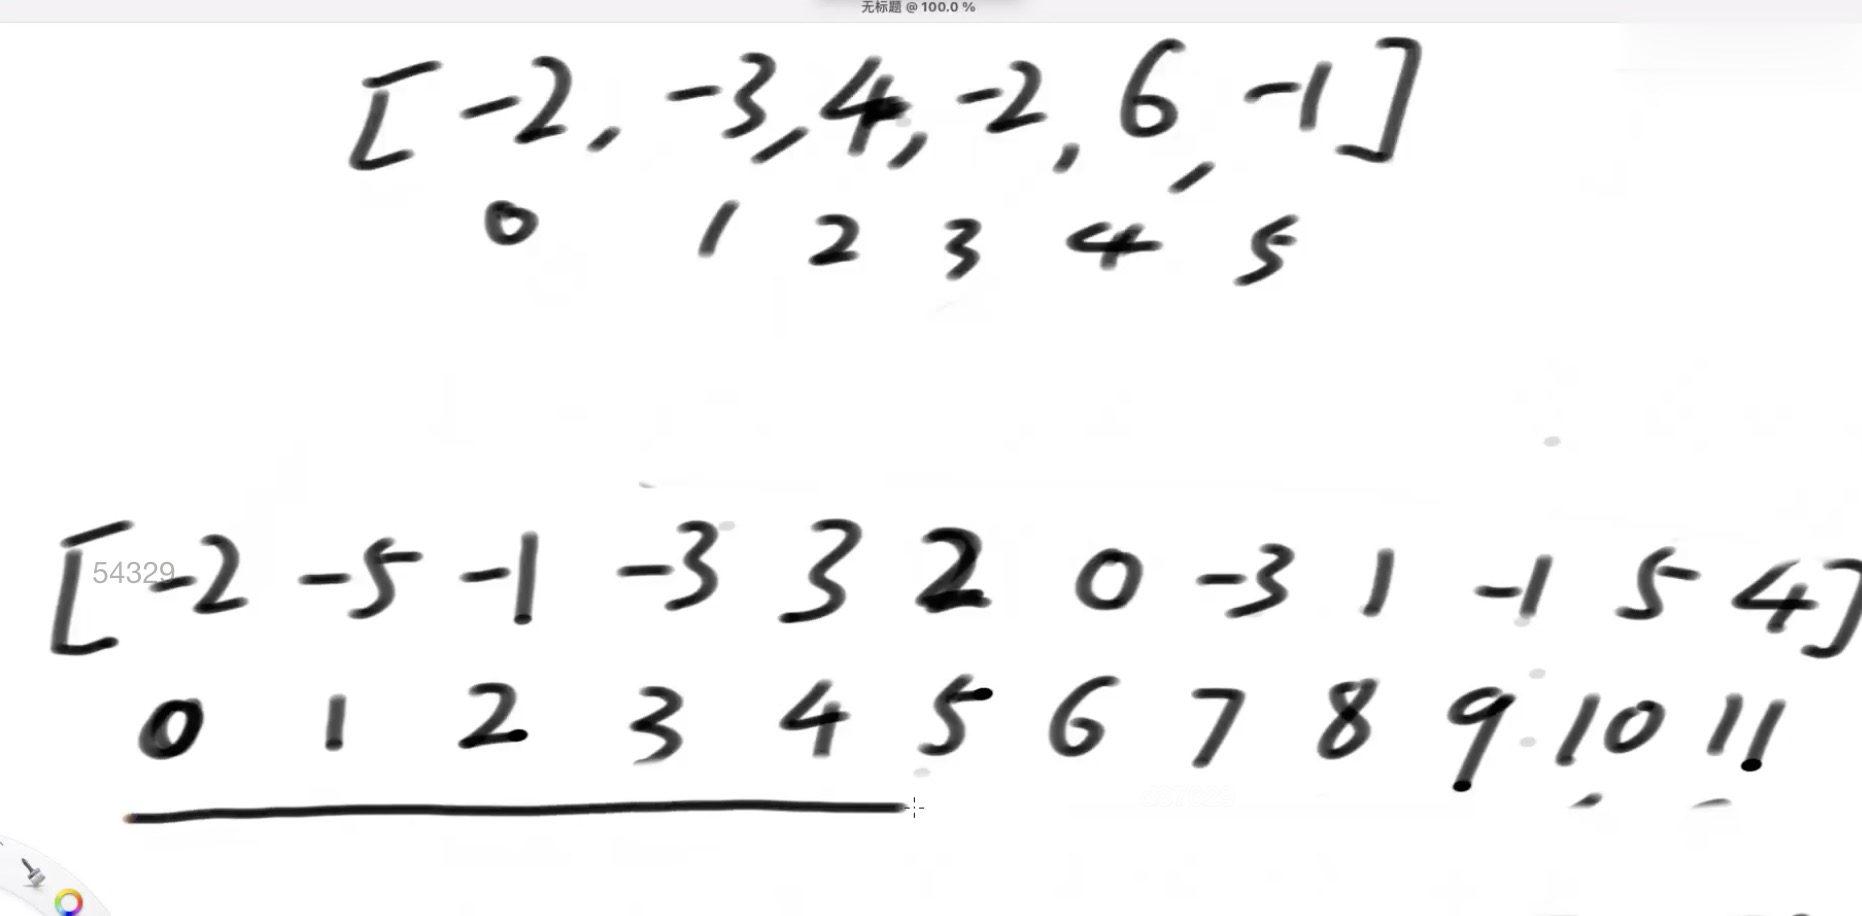 无标题 @ 100.0 %
[ -2, -3, 4, -2, 6, -1 ]
0 1 2 3 4 5
[ -2 -5 -1 -3 3 2 0 -3 1 -1 5 4 ]
54329
0 1 2 3 4 5 6 7 8 9 10 11